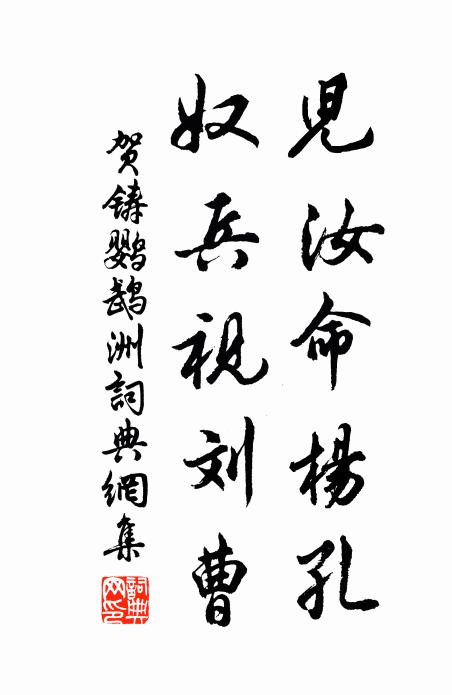 児汝命楊孔
奴兵視刘曹
贺鋳鹦鹉洲詞典網集
詞典网印